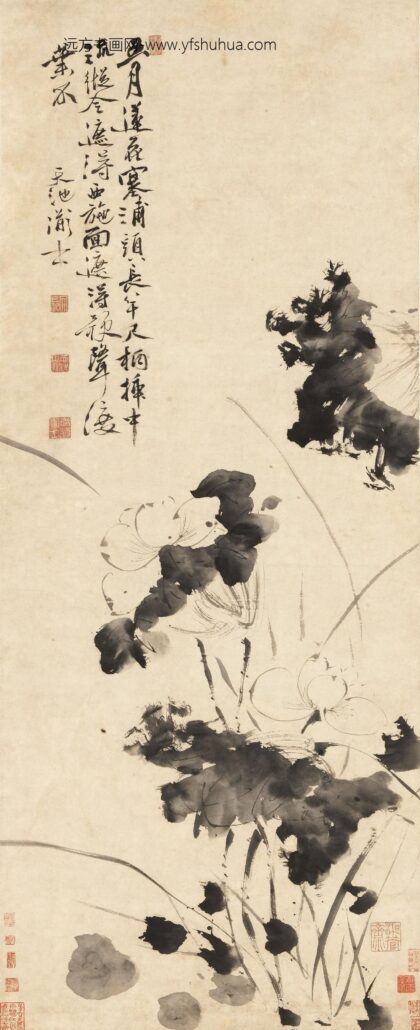 远方书画网 www.yfshuhua.com
五月蓮花塞浦頭長竿尺柄插中
流縱令遮得西施面遮得歌聲渡
葉不
天池漱士